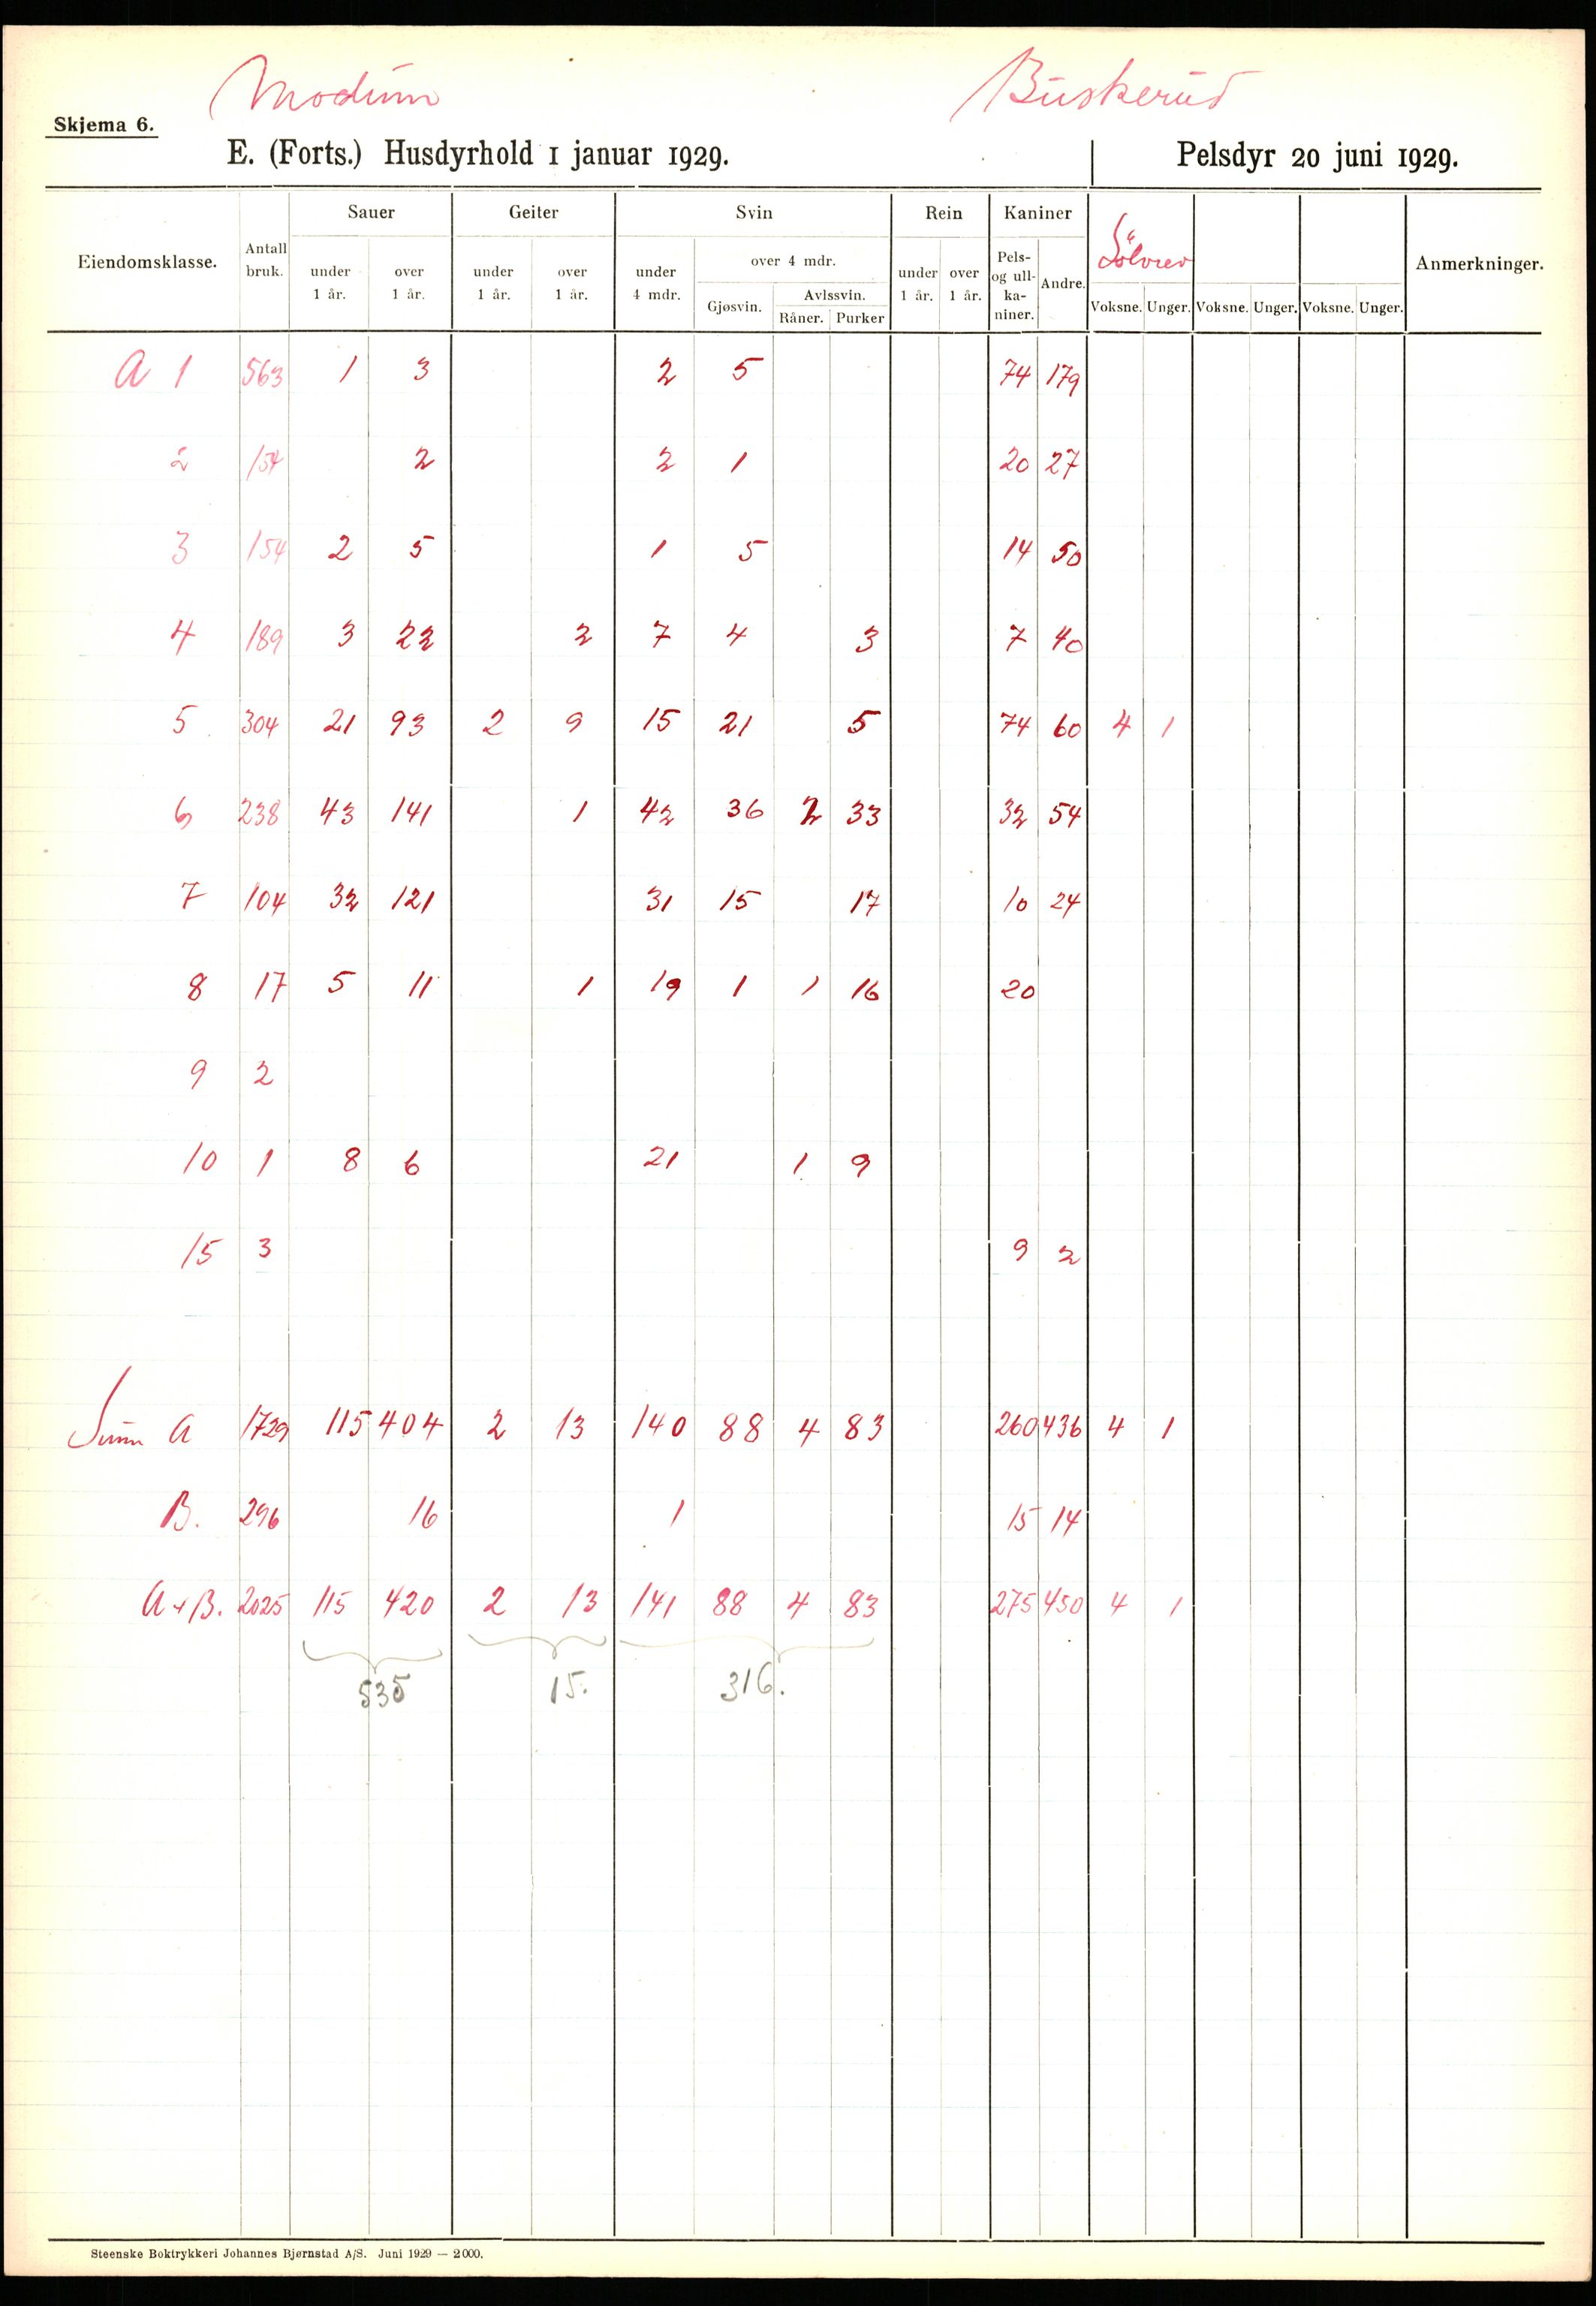 Modum Buskerud
Skjema 6.
E. (Forts.) Husdyrhold 1 januar 1929. Pelsdyr 20 juni 1929.
Eiendomsklasse. Antall bruk. Sauer Geiter Svin Rein Kaniner Sølvrev Anmerkninger.
under 1 år. over 1 år. under 1 år. over 1 år. under 4 mdr. over 4 mdr. under 1 år. over 1 år. Pels- og ull-ka-niner. Andre.
Gjøsvin. Avlssvin. Voksne. Unger. Voksne. Unger. Voksne. Unger.
Råner. Purker
A 1 563 1 3 2 5 74 179
2 154 2 2 1 20 27
3 154 2 5 1 5 14 50
4 189 3 22 2 7 4 3 7 40
5 304 21 93 2 9 15 21 5 74 60 4 1
6 238 43 141 1 42 36 2 33 32 54
7 104 32 121 31 15 17 10 24
8 17 5 11 1 19 1 1 16 20
9 2
10 1 8 6 21 1 9
15 3 9 2
Sum A 1729 115 404 2 13 140 88 4 83 260 436 4 1
B. 296 16 1 15 14
A+B. 2025 115 420 2 13 141 88 4 83 275 450 4 1
535 15. 316.
Steenske Boktrykkeri Johannes Bjørnstad A/S. Juni 1929 — 2000.